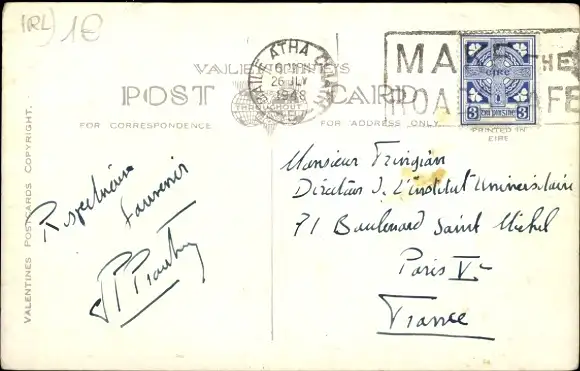 IRL) 1€
VALENTINE'S
POST CARD
BAILE ATHA CLIATH
26 JLY
1948
MAKE THE
ROADS SAFE
EIRE
3 3
THROUGHOUT
FOR CORRESPONDENCE
FOR ADDRESS ONLY
PRINTED IN
EIRE
VALENTINES POSTCARDS COPYRIGHT.
Respectueux
Souvenir
Monsieur
Directeur de L'institut Universitaire
71 Boulevard Saint Michel
Paris Ve
France